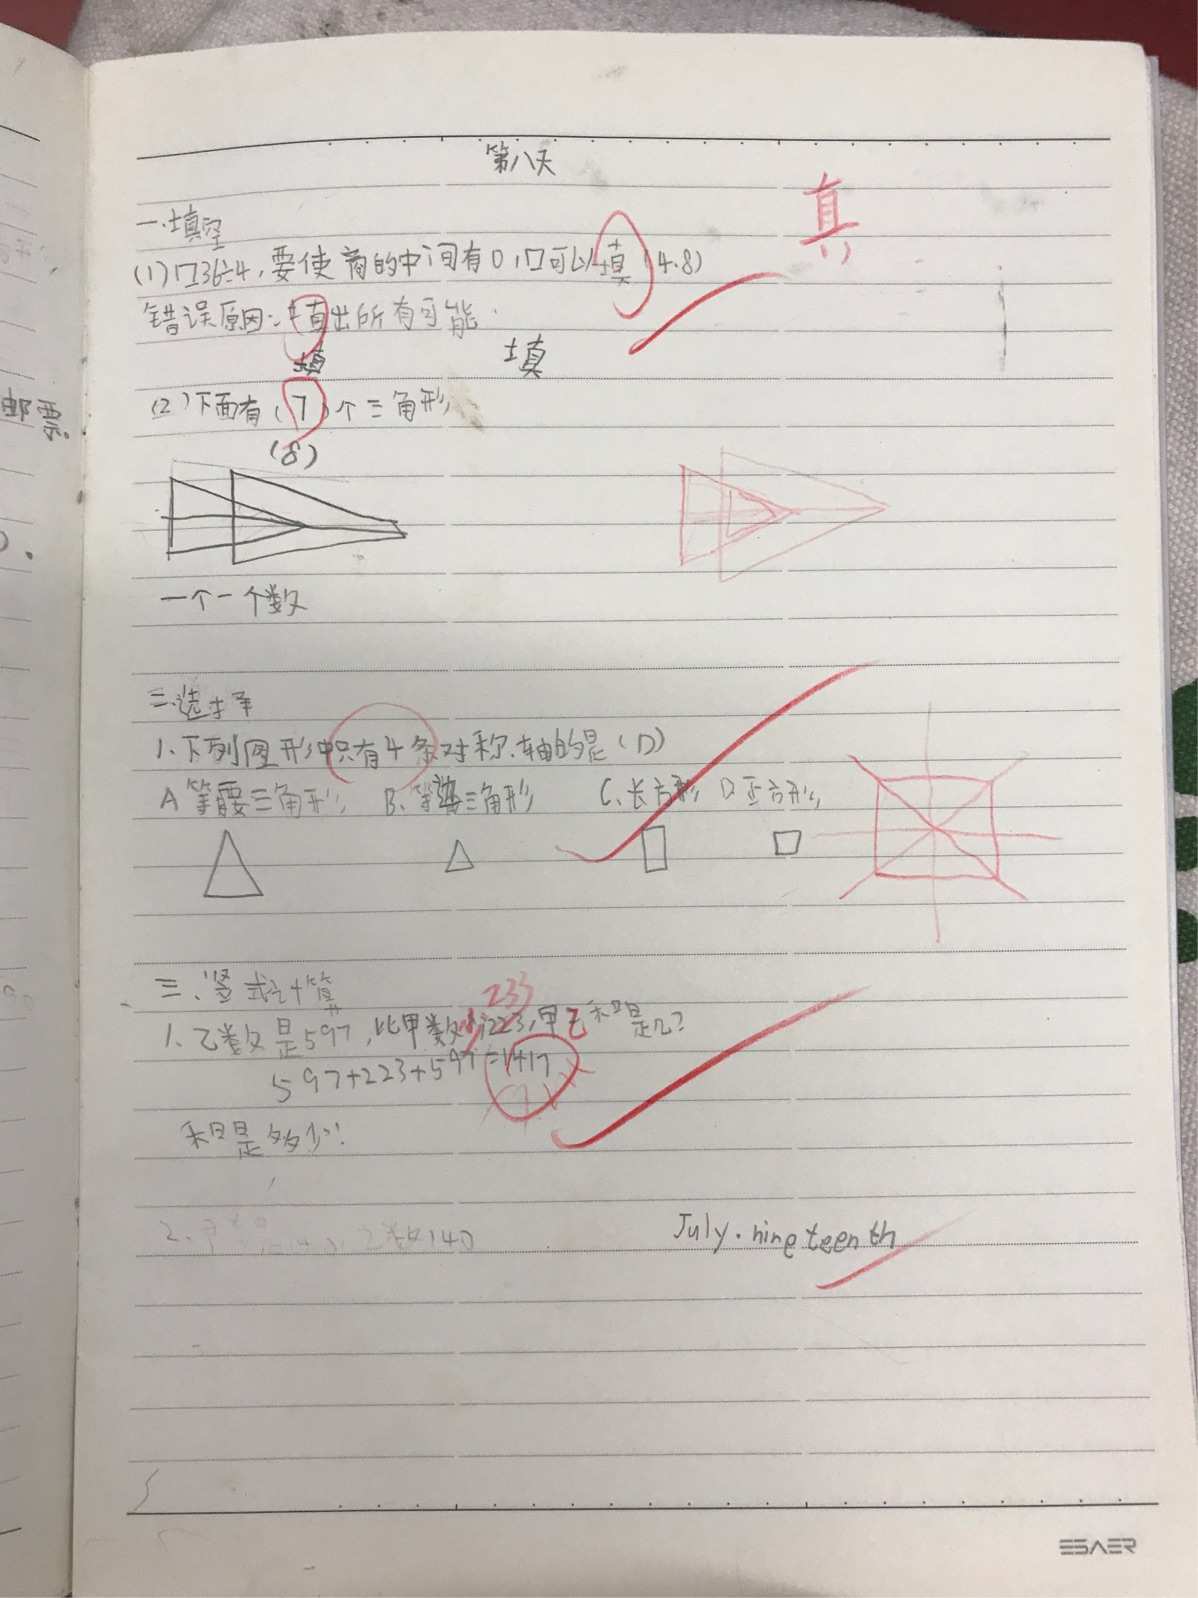 第八天
真
一.填空
(1)口36÷4,要使商的中间有0,口可以填(4.8)
错误原因:填出所有可能.
填 填
(2)下面有(7)个三角形
(8)
一个一个数
二.选择
1.下列图形中只有4条对称轴的是(D)
A等腰三角形 B、等边三角形 C、长方形 D正方形
三、竖式计算
233
1、乙数是597,比甲数少223,甲乙和是几?
597+223+597=1417
和是多少!
2、乙数140
July.nineteenth
ESAER
邮票。